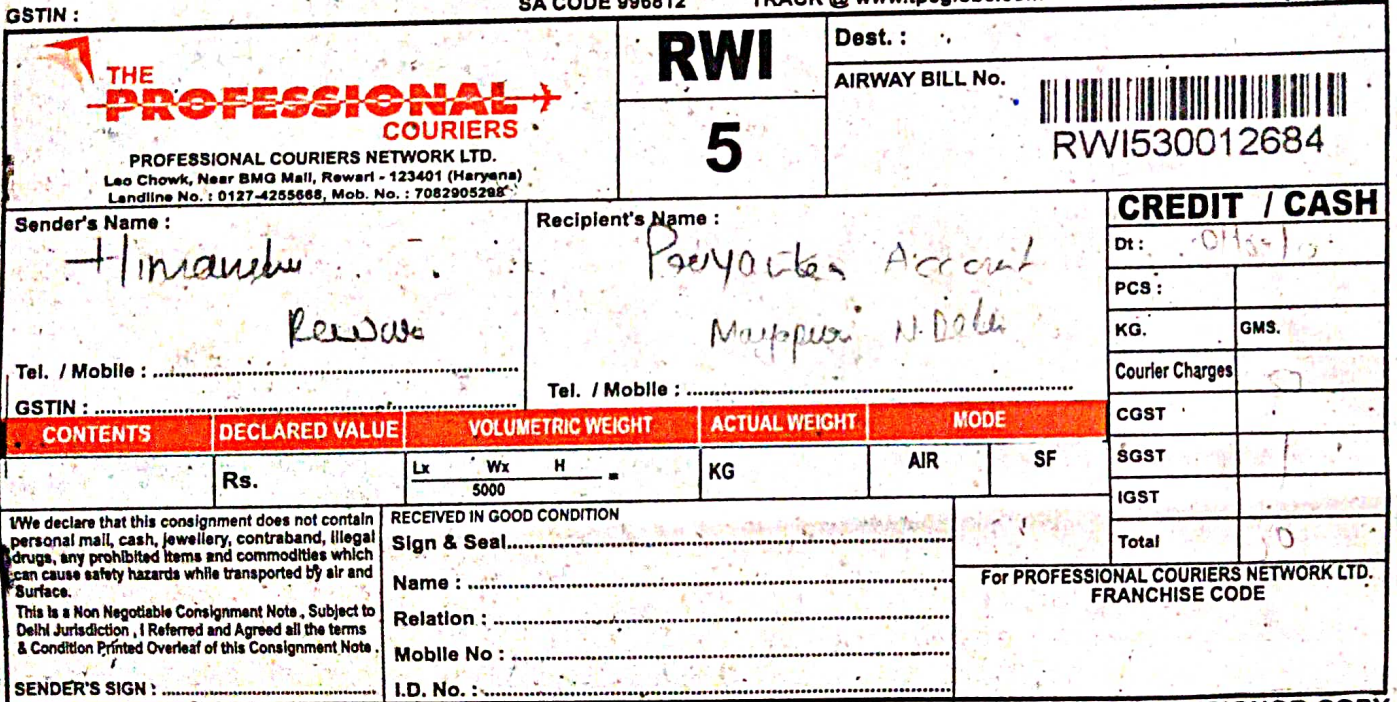 GSTIN :
SA CODE 996812
TRACK @
THE
PROFESSIONAL
COURIERS
PROFESSIONAL COURIERS NETWORK LTD.
Leo Chowk, Near BMG Mall, Rewari - 123401 (Haryana)
Landline No. : 0127-4255668, Mob. No. : 7082905298
RWI
5
Dest. :
AIRWAY BILL No.
RWI530012684
Sender's Name :
Himanshu
Rewari
Tel. / Mobile :
GSTIN :
Recipient's Name :
Priyanka Account
Mayapuri N. Delhi
Tel. / Mobile :
CREDIT / CASH
Dt :
PCS :
KG. GMS.
Courier Charges
CGST
SGST
IGST
Total
CONTENTS DECLARED VALUE VOLUMETRIC WEIGHT ACTUAL WEIGHT MODE
Rs. Lx Wx H = KG AIR SF
5000
I/We declare that this consignment does not contain
personal mail, cash, jewellery, contraband, illegal
drugs, any prohibited items and commodities which
can cause safety hazards while transported by air and
Surface.
This is a Non Negotiable Consignment Note , Subject to
Delhi Jurisdiction , I Referred and Agreed all the terms
& Condition Printed Overleaf of this Consignment Note .
SENDER'S SIGN :
RECEIVED IN GOOD CONDITION
Sign & Seal
Name :
Relation :
Mobile No :
I.D. No. :
For PROFESSIONAL COURIERS NETWORK LTD.
FRANCHISE CODE
COPY